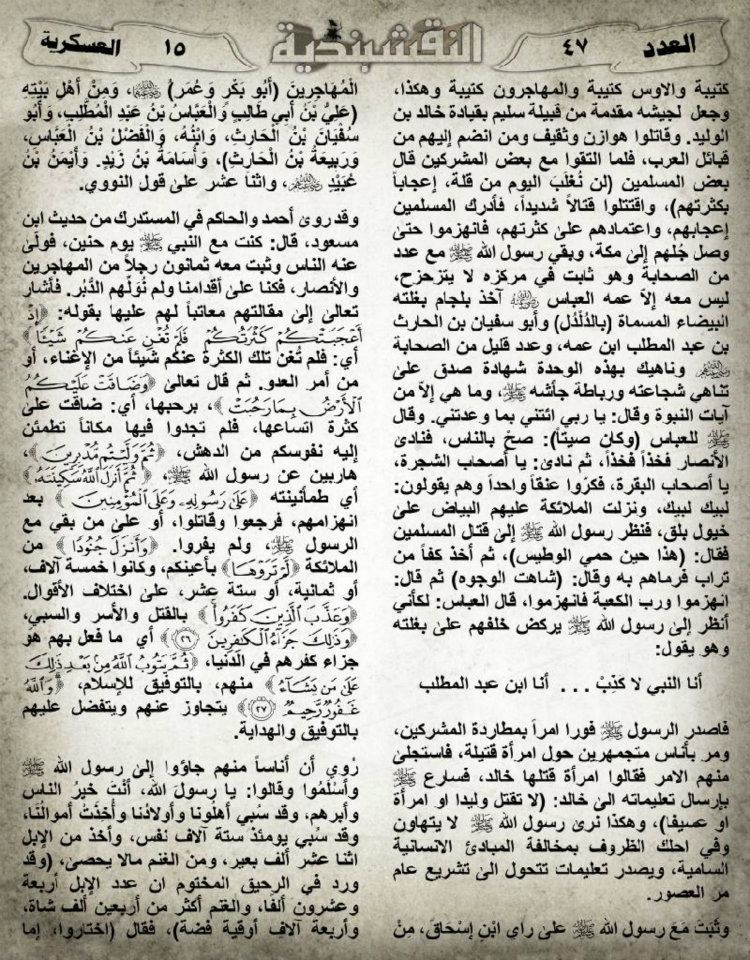 العدد ٤٧
النقشبندية
١٥ العسكرية
كتيبة والاوس كتيبة والمهاجرون كتيبة وهكذا،
وجعل لجيشه مقدمة من قبيلة سليم بقيادة خالد بن
الوليد. وقاتلوا هوازن وثقيف ومن انضم إليهم من
قبائل العرب، فلما التقوا مع بعض المشركين قال
بعض المسلمين (لن نُغْلبَ اليوم من قلة، إعجاباً
بكثرتهم)، واقتتلوا قتالاً شديداً، فأدرك المسلمين
إعجابهم، واعتمادهم على كثرتهم، فانهزموا حتىٰ
وصل جُلهم إلىٰ مكة، وبقي رسول الله ﷺ مع عدد
من الصحابة وهو ثابت في مركزه لا يتزحزح،
ليس معه إلاّ عمه العباس آخذ بلجام بغلته
البيضاء المسماة (بالدُلْدُل) وأبو سفيان بن الحارث
بن عبد المطلب ابن عمه، وعدد قليل من الصحابة
وناهيك بهذه الوحدة شهادة صدق علىٰ
تناهي شجاعته ورباطة جأشه ﷺ، وما هي إلاّ من
آيات النبوة وقال: يا ربي ائتني بما وعدتني. وقال
ﷺ للعباس (وكان صيتاً): صحّ بالناس، فنادىٰ
الأنصار فخذاً فخذاً، ثم نادىٰ: يا أصحاب الشجرة،
يا أصحاب البقرة، فكرّوا عنقاً واحداً وهم يقولون:
لبيك لبيك، ونزلت الملائكة عليهم البياض علىٰ
خيول بلق، فنظر رسول الله ﷺ إلىٰ قتال المسلمين
فقال: (هذا حين حمي الوطيس)، ثم أخذ كفاً من
تراب فرماهم به وقال: (شاهت الوجوه) ثم قال:
انهزموا ورب الكعبة فانهزموا، قال العباس: لكأني
أنظر إلىٰ رسول الله ﷺ يركض خلفهم علىٰ بغلته
وهو يقول:
أنا النبي لا كَذِبْ . . . أنا ابن عبد المطلب
فاصدر الرسول ﷺ فورا امراً بمطاردة المشركين،
ومر بأناس متجمهرين حول امرأة قتيلة، فاستجلىٰ
منهم الامر فقالوا امرأة قتلها خالد، فسارع ﷺ
بإرسال تعليماته الىٰ خالد: (لا تقتل وليدا او امرأة
او عسيفا)، وهكذا نرىٰ رسول الله ﷺ لا يتهاون
وفي احلك الظروف بمخالفة المبادئ الانسانية
السامية، ويصدر تعليمات تتحول الىٰ تشريع عام
مر العصور.
وثَبَتَ مَعَ رسول الله ﷺ علىٰ راي ابْنِ إسْحَاقَ، مِنْ
الْمُهَاجِرينَ (أَبُو بَكْرٍ وَعُمَر)، وَمِنْ أهْلِ بَيْتِهِ
(عَلِيُّ بْنُ أَبِي طَالِبٍ وَالْعَبَّاسُ بْنُ عَبْدِ الْمُطَّلِبِ، وَأَبُو
سُفْيَانَ بْنُ الْحَارِثِ، وَابْنُهُ، وَالْفَضْلُ بْنُ الْعَبَّاسِ،
وَرَبِيعَةُ بْنُ الْحَارِثِ)، وَأُسَامَةُ بْنُ زَيْدٍ. وَأَيْمَنُ بْنُ
عُبَيْدٍ، واثنا عشر علىٰ قول النووي.
وقد روىٰ أحمد والحاكم في المستدرك من حديث ابن
مسعود، قال: كنت مع النبي ﷺ يوم حنين، فولّىٰ
عنه الناس وثبت معه ثمانون رجلاً من المهاجرين
والأنصار، فكنا علىٰ أقدامنا ولم نُوَلِّهم الدُّبُر. فأشار
تعالىٰ إلىٰ مقالتهم معاتباً لهم عليها بقوله: ﴿إِذْ
أَعْجَبَتْكُمْ كَثْرَتُكُمْ فَلَمْ تُغْنِ عَنكُمْ شَيْئًا﴾
أي: فلم تُغن تلك الكثرة عنكم شيئاً من الإغناء، أو
من أمر العدو. ثم قال تعالىٰ ﴿وَضَاقَتْ عَلَيْكُمُ
الْأَرْضُ بِمَا رَحُبَتْ﴾، برحبها، أي: ضاقت علىٰ
كثرة اتساعها، فلم تجدوا فيها مكاناً تطمئن
إليه نفوسكم من الدهش، ﴿ثُمَّ وَلَّيْتُم مُّدْبِرِينَ﴾،
هاربين عن رسول الله ﷺ، ﴿ثُمَّ أَنزَلَ اللَّهُ سَكِينَتَهُ﴾
أي طمأنينته ﴿عَلَىٰ رَسُولِهِ وَعَلَى الْمُؤْمِنِينَ﴾ بعد
انهزامهم، فرجعوا وقاتلوا، أو علىٰ من بقي مع
الرسول ﷺ، ولم يفروا. ﴿وَأَنزَلَ جُنُودًا﴾ من
الملائكة ﴿لَّمْ تَرَوْهَا﴾ بأعينكم، وكانوا خمسة آلاف،
أو ثمانية، أو ستة عشر، علىٰ اختلاف الأقوال.
﴿وَعَذَّبَ الَّذِينَ كَفَرُوا﴾ بالقتل والأسر والسبي،
﴿وَذَٰلِكَ جَزَاءُ الْكَافِرِينَ ٢٦﴾ أي ما فعل بهم هو
جزاء كفرهم في الدنيا، ﴿ثُمَّ يَتُوبُ اللَّهُ مِن بَعْدِ ذَٰلِكَ
عَلَىٰ مَن يَشَاءُ﴾ منهم، بالتوفيق للإسلام، ﴿وَاللَّهُ
غَفُورٌ رَّحِيمٌ ٢٧﴾ يتجاوز عنهم ويتفضل عليهم
بالتوفيق والهداية.
رُوي أن أناساً منهم جاؤوا إلىٰ رسول الله ﷺ
وأسْلَمُوا وقالوا: يا رسول الله، أَنْتَ خيرُ الناس
وأبرهم، وقد سُبي أهلونا وأولادُنا وأُخِذَتْ أموالُنا،
وقد سُبي يومئذ ستة آلاف نفس، وأخذ من الإبل
اثنا عشر ألف بعير، ومن الغنم مالا يحصىٰ، (وقد
ورد في الرحيق المختوم ان عدد الإبل أربعة
وعشرون ألفا، والغنم أكثر من أربعين ألف شاة،
وأربعة آلاف أوقية فضة)، فقال (اختاروا، إما